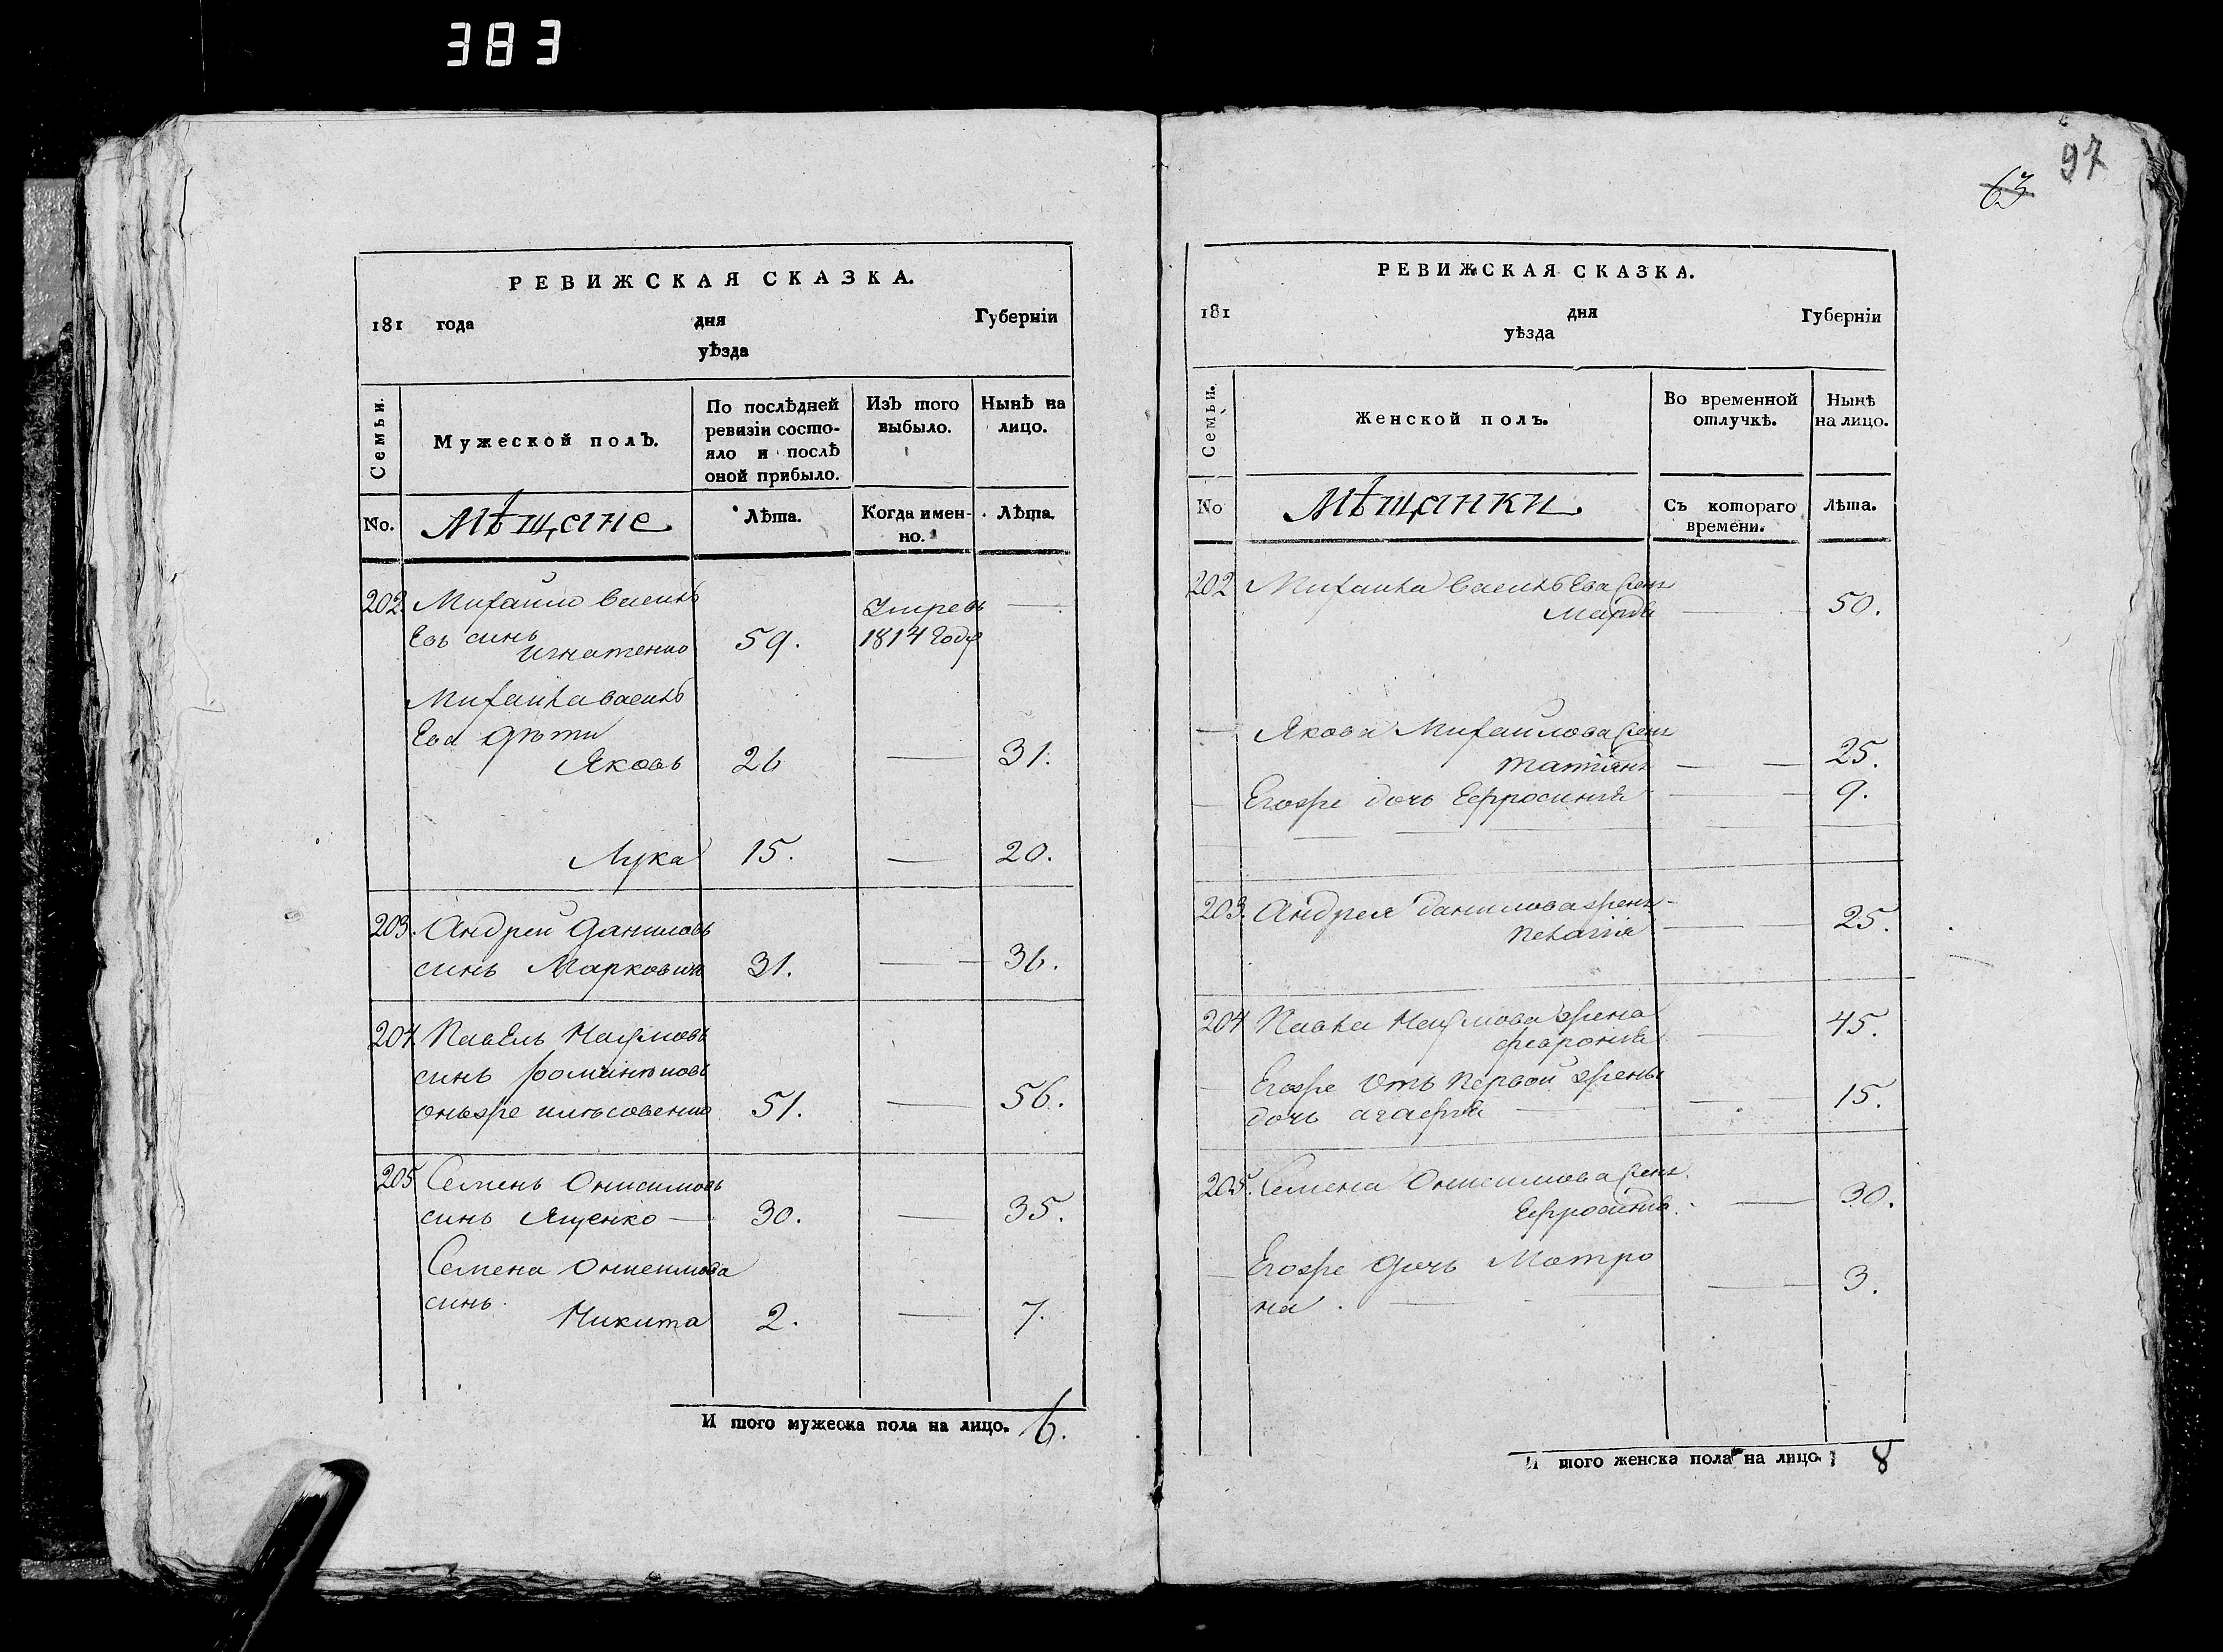 383
97
63
РЕВИЖСКАЯ СКАЗКА.
181 года дня Губерніи
уѣзда
Семьи.
Мужеской полъ.
По послѣдней
ревизіи состо-
яло и послѣ
оной прибыло.
Изъ того
выбыло.
Нынѣ на
лицо.
No.
Мѣщане
Лѣта.
Когда имен-
но.
Лѣта.
202. Михайло Василь
евъ синъ
Игнатенко 59. Умревъ 1814 году
Михайла Василь
ева дѣти
Яковъ 26 31.
Лука 15. 20.
203. Андрей Даниловъ
синъ Марковичъ 31. 36.
204. Павелъ Наумовъ
синъ
онъже 51. 56.
205 Семенъ Онисимовъ
синъ Яценко 30. 35.
Семена Онисимова
синъ
Никита 2. 7.
И того мужеска пола на лицо. 6.
РЕВИЖСКАЯ СКАЗКА.
181 дня Губерніи
уѣзда
Семьи.
Женской полъ.
Во временной
отлучкѣ.
Нынѣ
на лицо.
No
Мѣщанки
Съ котораго
времени.
Лѣта.
202 Михайла Васильева жена
Марфа 50.
Якова Михайлова жена
Татіяна 25.
Егоже дочь Ефросинія 9.
203. Андрея Данилова жена
Пелагія 25.
204 Павла Наумова жена
Феvронія 45.
Егоже отъ первой жены
дочь Агафія 15.
205. Семена Онисимова жена
Ефросинія 30.
Егоже дочь Матро
на 3.
И того женска пола на лицо. 8